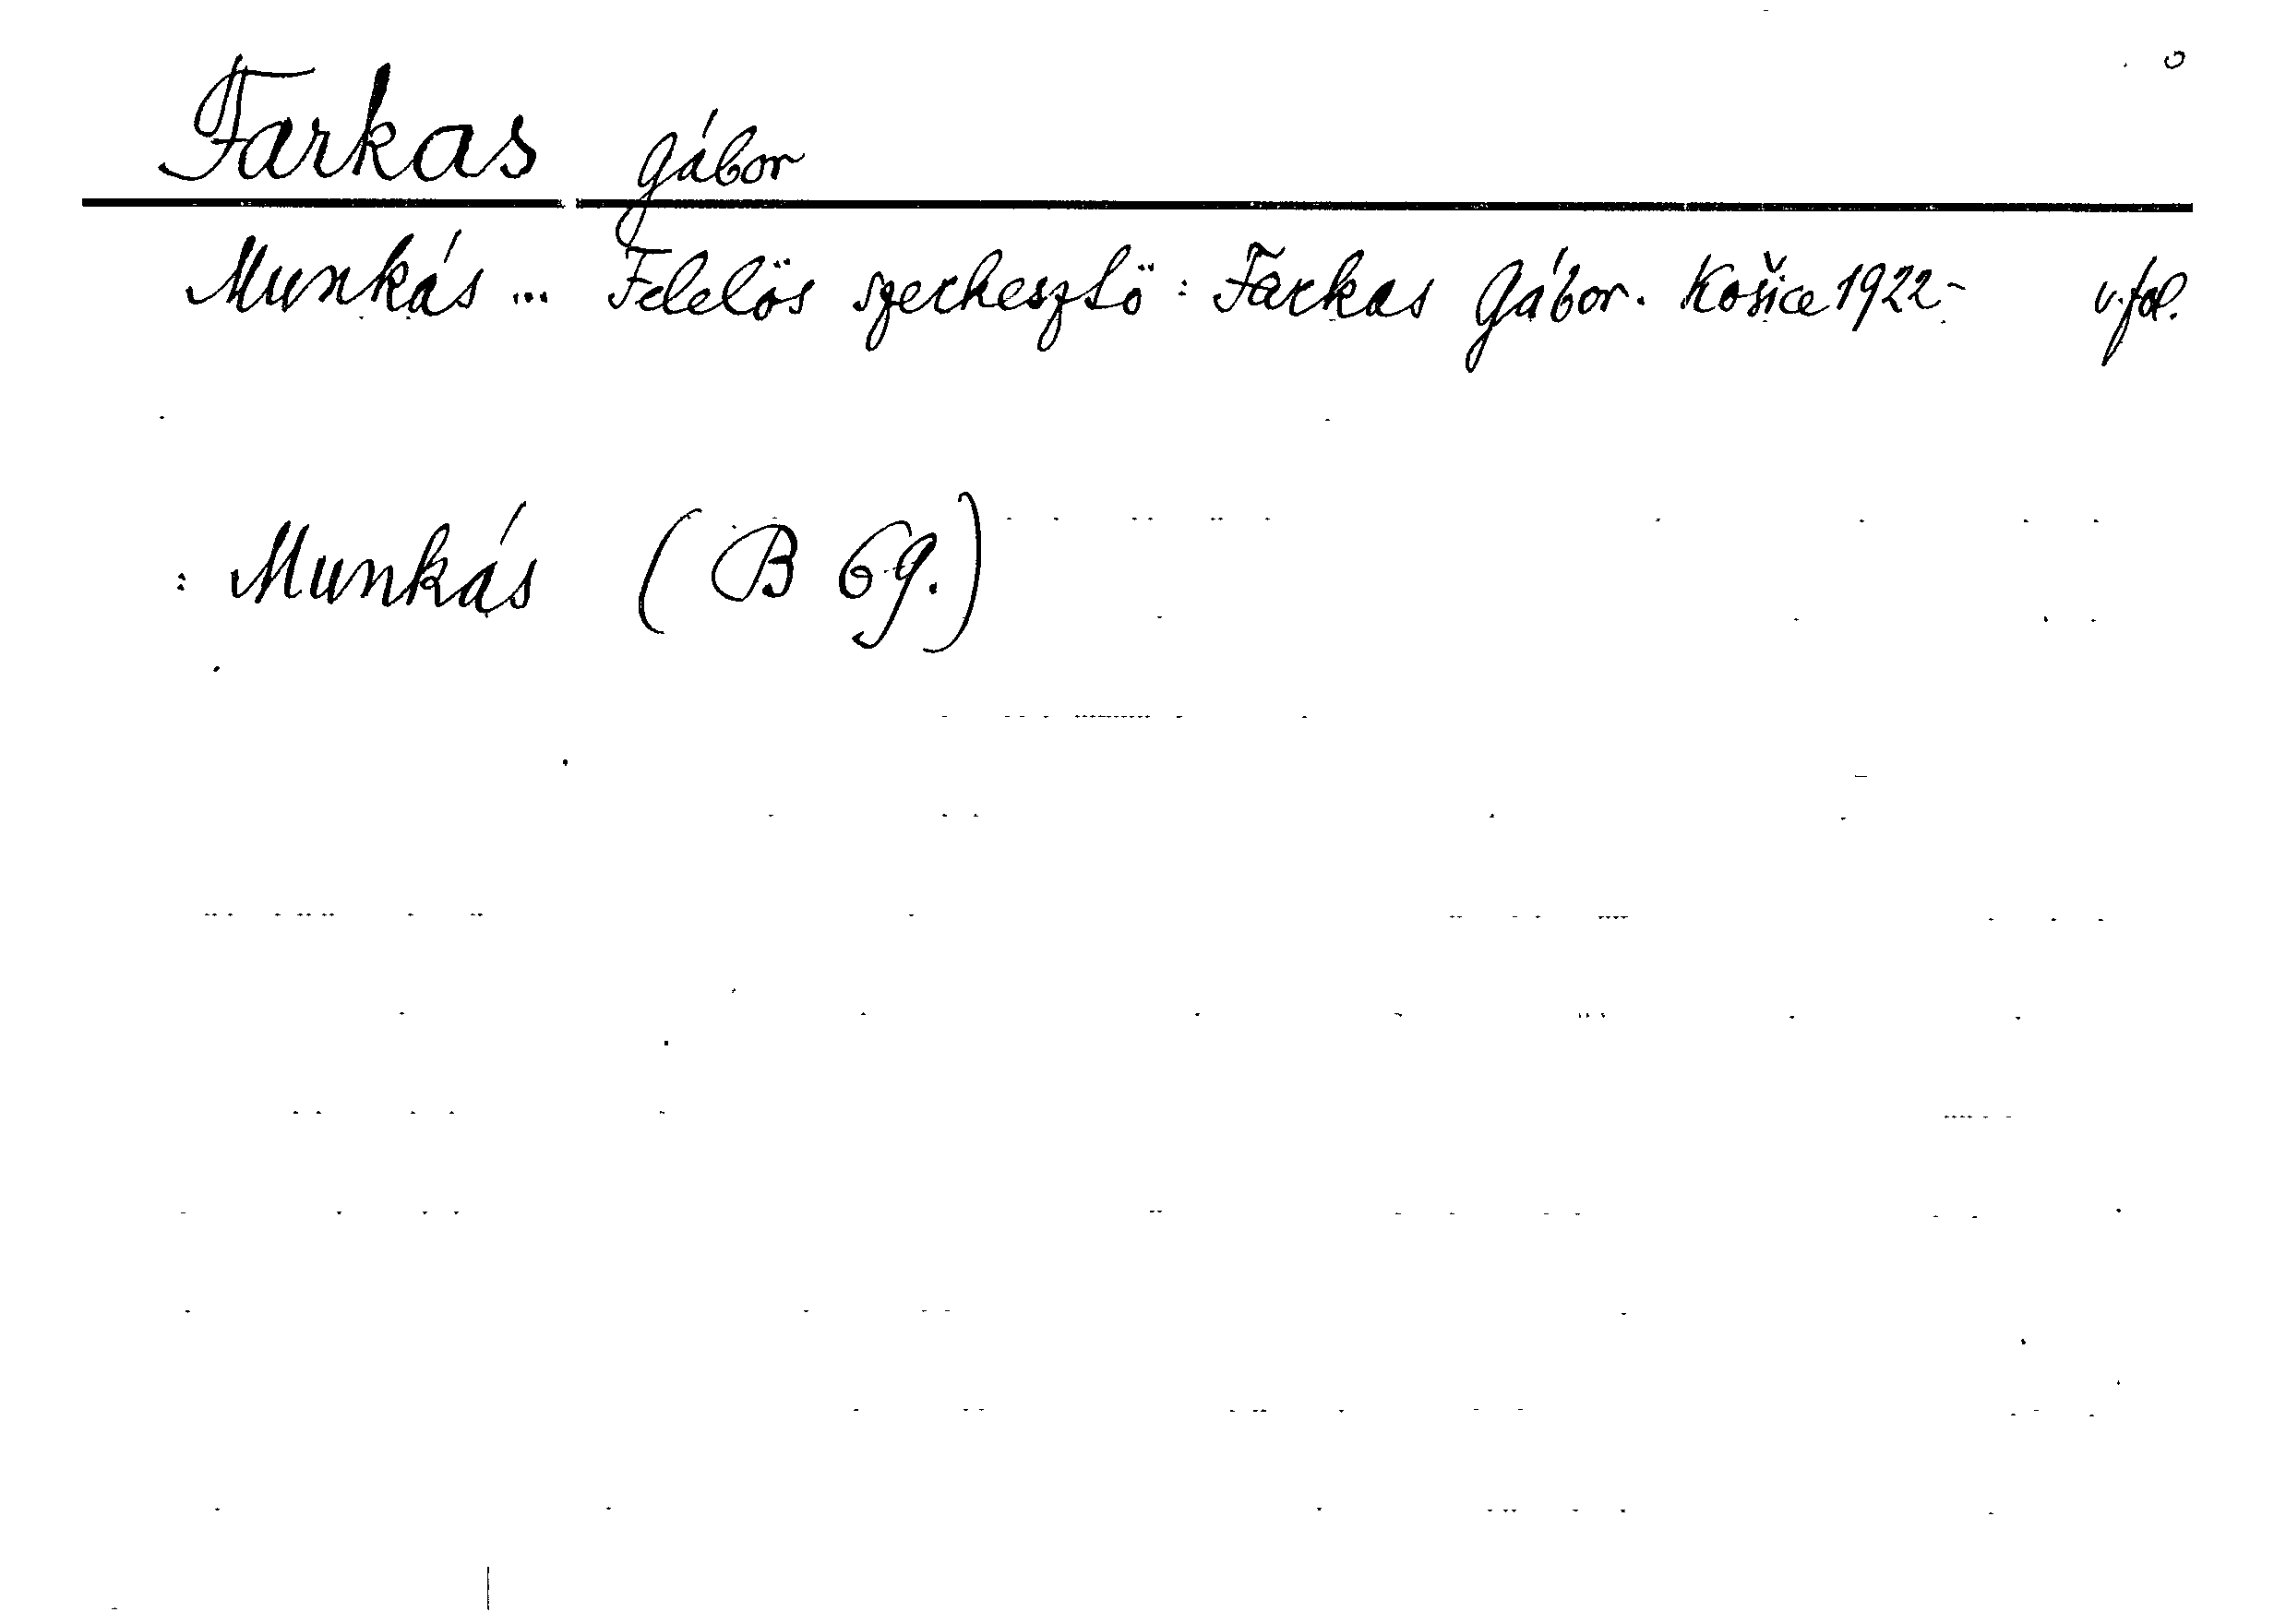 Farkas Gábor
Munkás ... Felelös szerkesztö: Farkas Gábor. Košice 1922- v. fol.
: Munkás (B 69.)